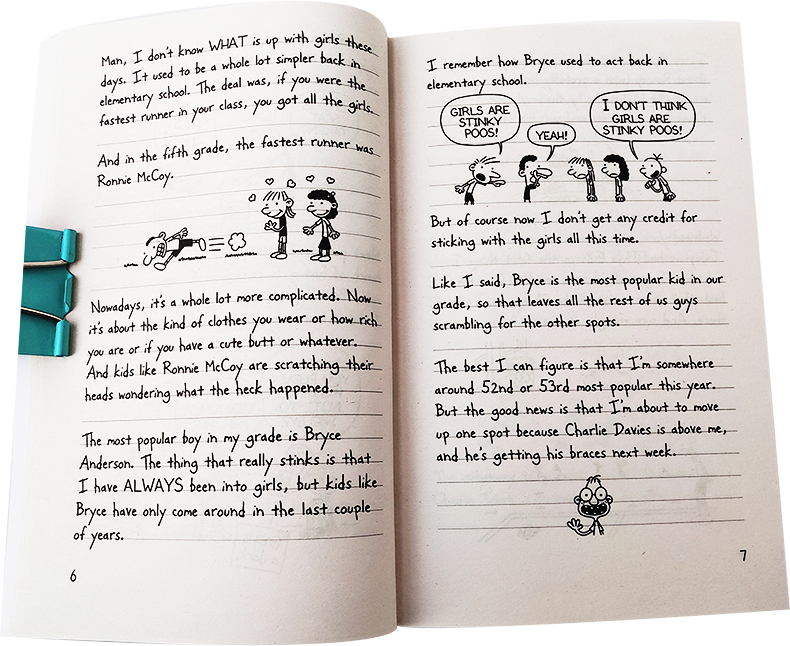 Man, I don't know WHAT is up with girls these
days. It used to be a whole lot simpler back in
elementary school. The deal was, if you were the
fastest runner in your class, you got all the girls.
And in the fifth grade, the fastest runner was
Ronnie McCoy.
Nowadays, it's a whole lot more complicated. Now
it's about the kind of clothes you wear or how rich
you are or if you have a cute butt or whatever.
And kids like Ronnie McCoy are scratching their
heads wondering what the heck happened.
The most popular boy in my grade is Bryce
Anderson. The thing that really stinks is that
I have ALWAYS been into girls, but kids like
Bryce have only come around in the last couple
of years.
6
I remember how Bryce used to act back in
elementary school.
GIRLS ARE
STINKY
POOS!
YEAH!
I DON'T THINK
GIRLS ARE
STINKY POOS!
But of course now I don't get any credit for
sticking with the girls all this time.
Like I said, Bryce is the most popular kid in our
grade, so that leaves all the rest of us guys
scrambling for the other spots.
The best I can figure is that I'm somewhere
around 52nd or 53rd most popular this year.
But the good news is that I'm about to move
up one spot because Charlie Davies is above me,
and he's getting his braces next week.
7